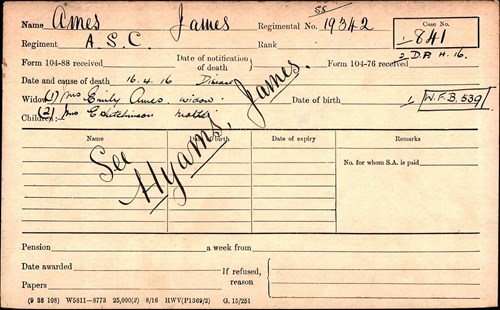 Name Ames James Regimental No. SS/19342 Case No. 1/841
Regiment A. S. C. Rank 2 D.P. H. 16.
Form 104-88 received Date of notification of death Form 104-76 received
Date and cause of death 16.4.16 Disease
Widow (1) Mrs Emily Ames. widow. Date of birth 1/W.F.B. 539
Children: (2) Mrs C Hutchinson Mother
Name Date of birth Date of expiry Remarks
No. for whom S.A. is paid
See Hyams, James.
Pension a week from
Date awarded If refused, reason
Papers
(9 38 108) W5811—8773 25,000(8) 8/16 HWV(P1369/2) G. 15/251